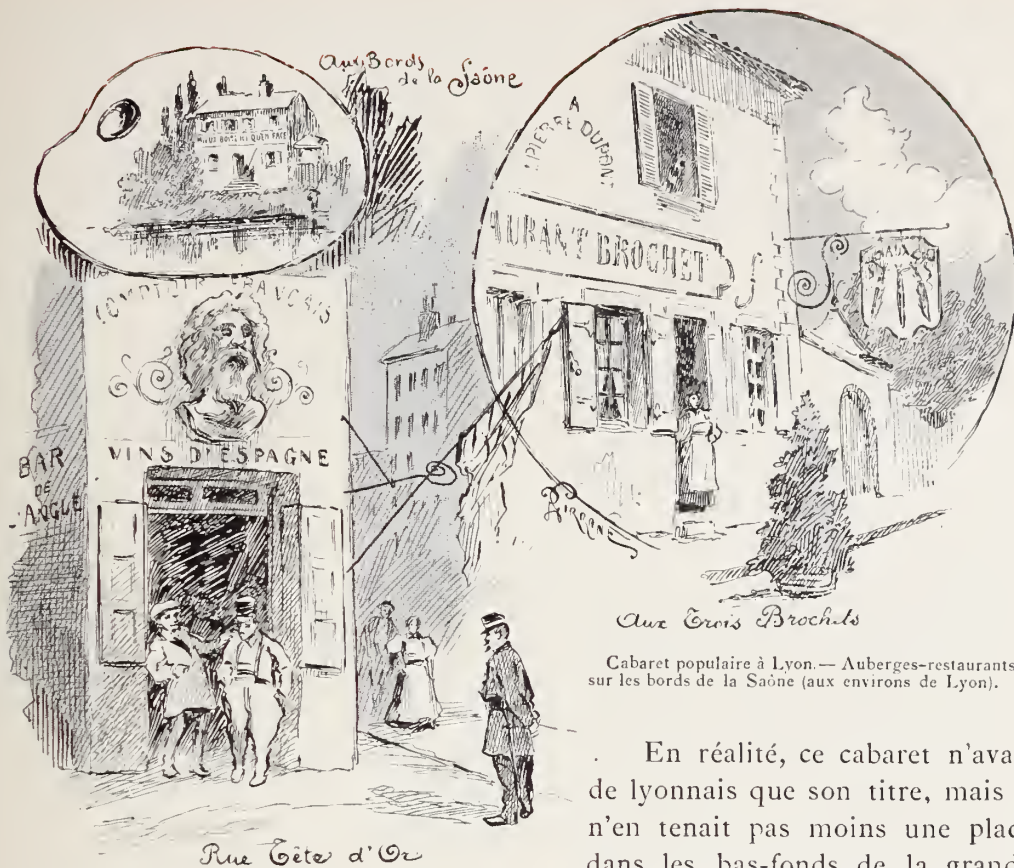 Aux Bords
de la Saône
MIEUX BOIRE ICI QU'EN FACE
A
PIERRE DUPONT
AURANT BROCHET
AUX
COMPTOIR FRANÇAIS
VINS D'ESPAGNE
BAR
DE
L'ANGLE
Aux Trois Brochets
Rue Tête d'Or
Cabaret populaire à Lyon. — Auberges-restaurants
sur les bords de la Saône (aux environs de Lyon).
En réalité, ce cabaret n'ava
de lyonnais que son titre, mais
n'en tenait pas moins une plac
dans les bas-fonds de la grand